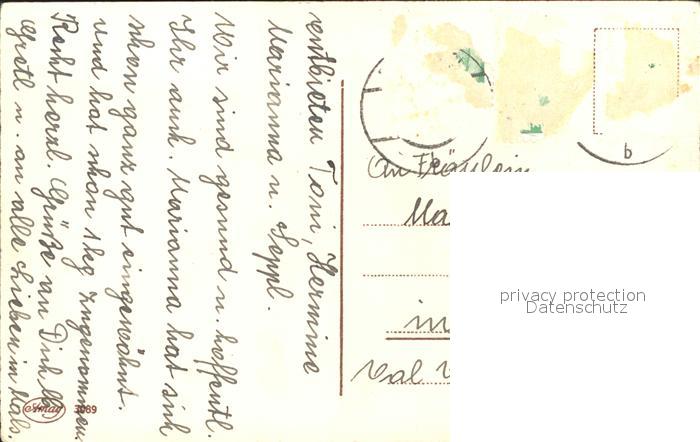 entbieten Toni, Hermine
Marianna u. Seppl.
Wir sind gesund u. hoffentl.
Ihr auch. Marianna hat sich
schon ganz gut eingewöhnt.
und hat schon 1 kg zugenommen.
Recht herzl. Grüße an Dich
Gretl u. an alle Lieben in Mals.
An Fräulein
Ma
in
Val V
b
Amag 3089
privacy protection
Datenschutz